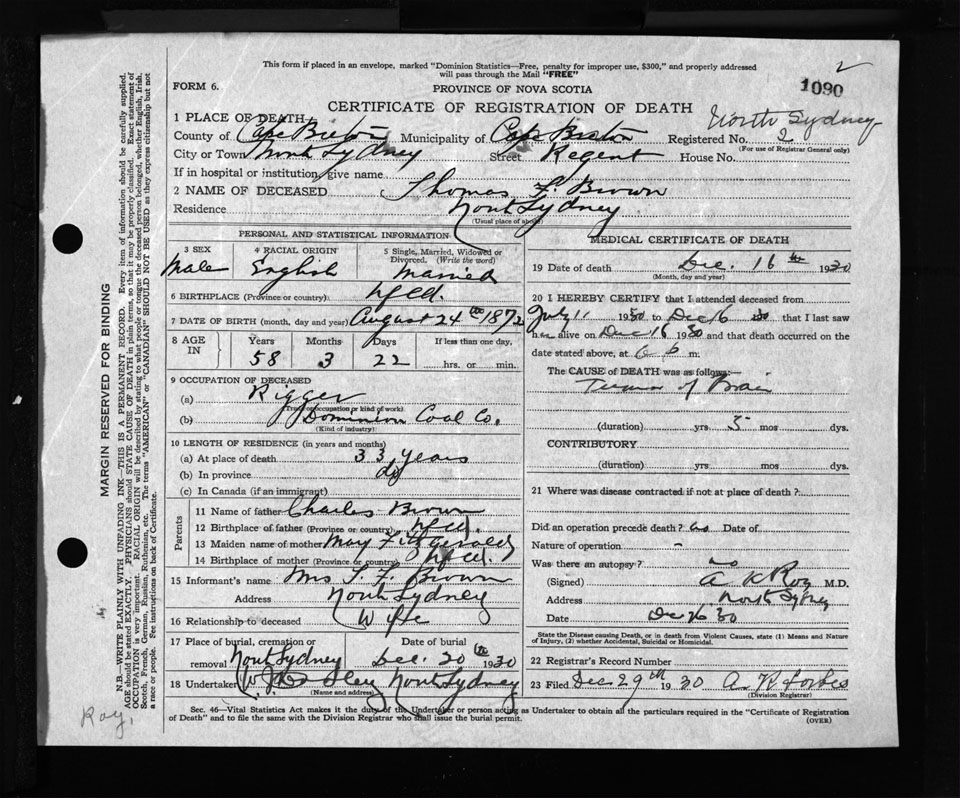 This form if placed in an envelope, marked "Dominion Statistics—Free, penalty for improper use, $300," and properly addressed
will pass through the Mail "FREE"
2
1090
FORM 6.
PROVINCE OF NOVA SCOTIA
CERTIFICATE OF REGISTRATION OF DEATH
North Sydney
1 PLACE OF DEATH—
County of Cape Breton Municipality of Cape Breton Registered No. 2
(For use of Registrar General only)
City or Town North Sydney Street Regent House No.
If in hospital or institution, give name
2 NAME OF DECEASED Thomas F. Brown
Residence North Sydney
(Usual place of abode)
PERSONAL AND STATISTICAL INFORMATION
3 SEX 4 RACIAL ORIGIN 5 Single, Married, Widowed or Divorced. (Write the word)
Male English Married
6 BIRTHPLACE (Province or country) Nfld.
7 DATE OF BIRTH (month, day and year) August 24th 1872
8 AGE IN Years Months Days If less than one day,
58 3 22 hrs. or min.
9 OCCUPATION OF DECEASED
(a) Rigger
(Trade occupation or kind of work)
(b) Dominion Coal Co.
(Kind of industry)
10 LENGTH OF RESIDENCE (in years and months)
(a) At place of death 33 years
(b) In province do
(c) In Canada (if an immigrant)
Parents
11 Name of father Charles Brown
12 Birthplace of father (Province or country) Nfld.
13 Maiden name of mother May Fitzgerald
14 Birthplace of mother (Province or country) Nfld.
15 Informant's name Mrs T. F. Brown
Address North Sydney
16 Relationship to deceased Wife
17 Place of burial, cremation or removal Date of burial
North Sydney Dec. 20th 1930
18 Undertaker North Sydney
(Name and address)
MEDICAL CERTIFICATE OF DEATH
19 Date of death Dec. 16th 1930
(Month, day and year)
20 I HEREBY CERTIFY that I attended deceased from
July 11 1930 to Dec 16 30 that I last saw
h alive on Dec 16 1930 and that death occurred on the
date stated above, at 6 P m.
The CAUSE of DEATH was as follows:—
Tumor of Brain
(duration) yrs 5 mos dys.
CONTRIBUTORY
(duration) yrs. mos dys.
21 Where was disease contracted if not at place of death?
Did an operation precede death? no Date of
Nature of operation -
Was there an autopsy? no
(Signed) A K Roy M.D.
Address North Sydney
Date Dec 26 30
State the Disease causing Death, or in death from Violent Causes, state (1) Means and Nature
of Injury, (2) whether Accidental, Suicidal or Homicidal.
22 Registrar's Record Number
23 Filed Dec 29th 1930 A. K. Forbes
(Division Registrar)
Sec. 46—Vital Statistics Act makes it the duty of the Undertaker or person acting as Undertaker to obtain all the particulars required in the "Certificate of Registration
of Death" and to file the same with the Division Registrar who shall issue the burial permit.
(OVER)
MARGIN RESERVED FOR BINDING
N.B.—WRITE PLAINLY WITH UNFADING INK—THIS IS A PERMANENT RECORD. Every item of information should be carefully supplied.
AGE should be stated EXACTLY. PHYSICIANS should STATE CAUSE OF DEATH in plain terms, so that it may be properly classified. Exact statement of
OCCUPATION is very important. RACIAL ORIGIN will be described by stating to what people or tongue the deceased person belonged, whether English, Irish,
Scotch, French, German, Russian, Ruthenian, etc. The terms "AMERICAN" or "CANADIAN" SHOULD NOT BE USED as they express citizenship but not
a race or people. See instructions on back of Certificate.
Roy,